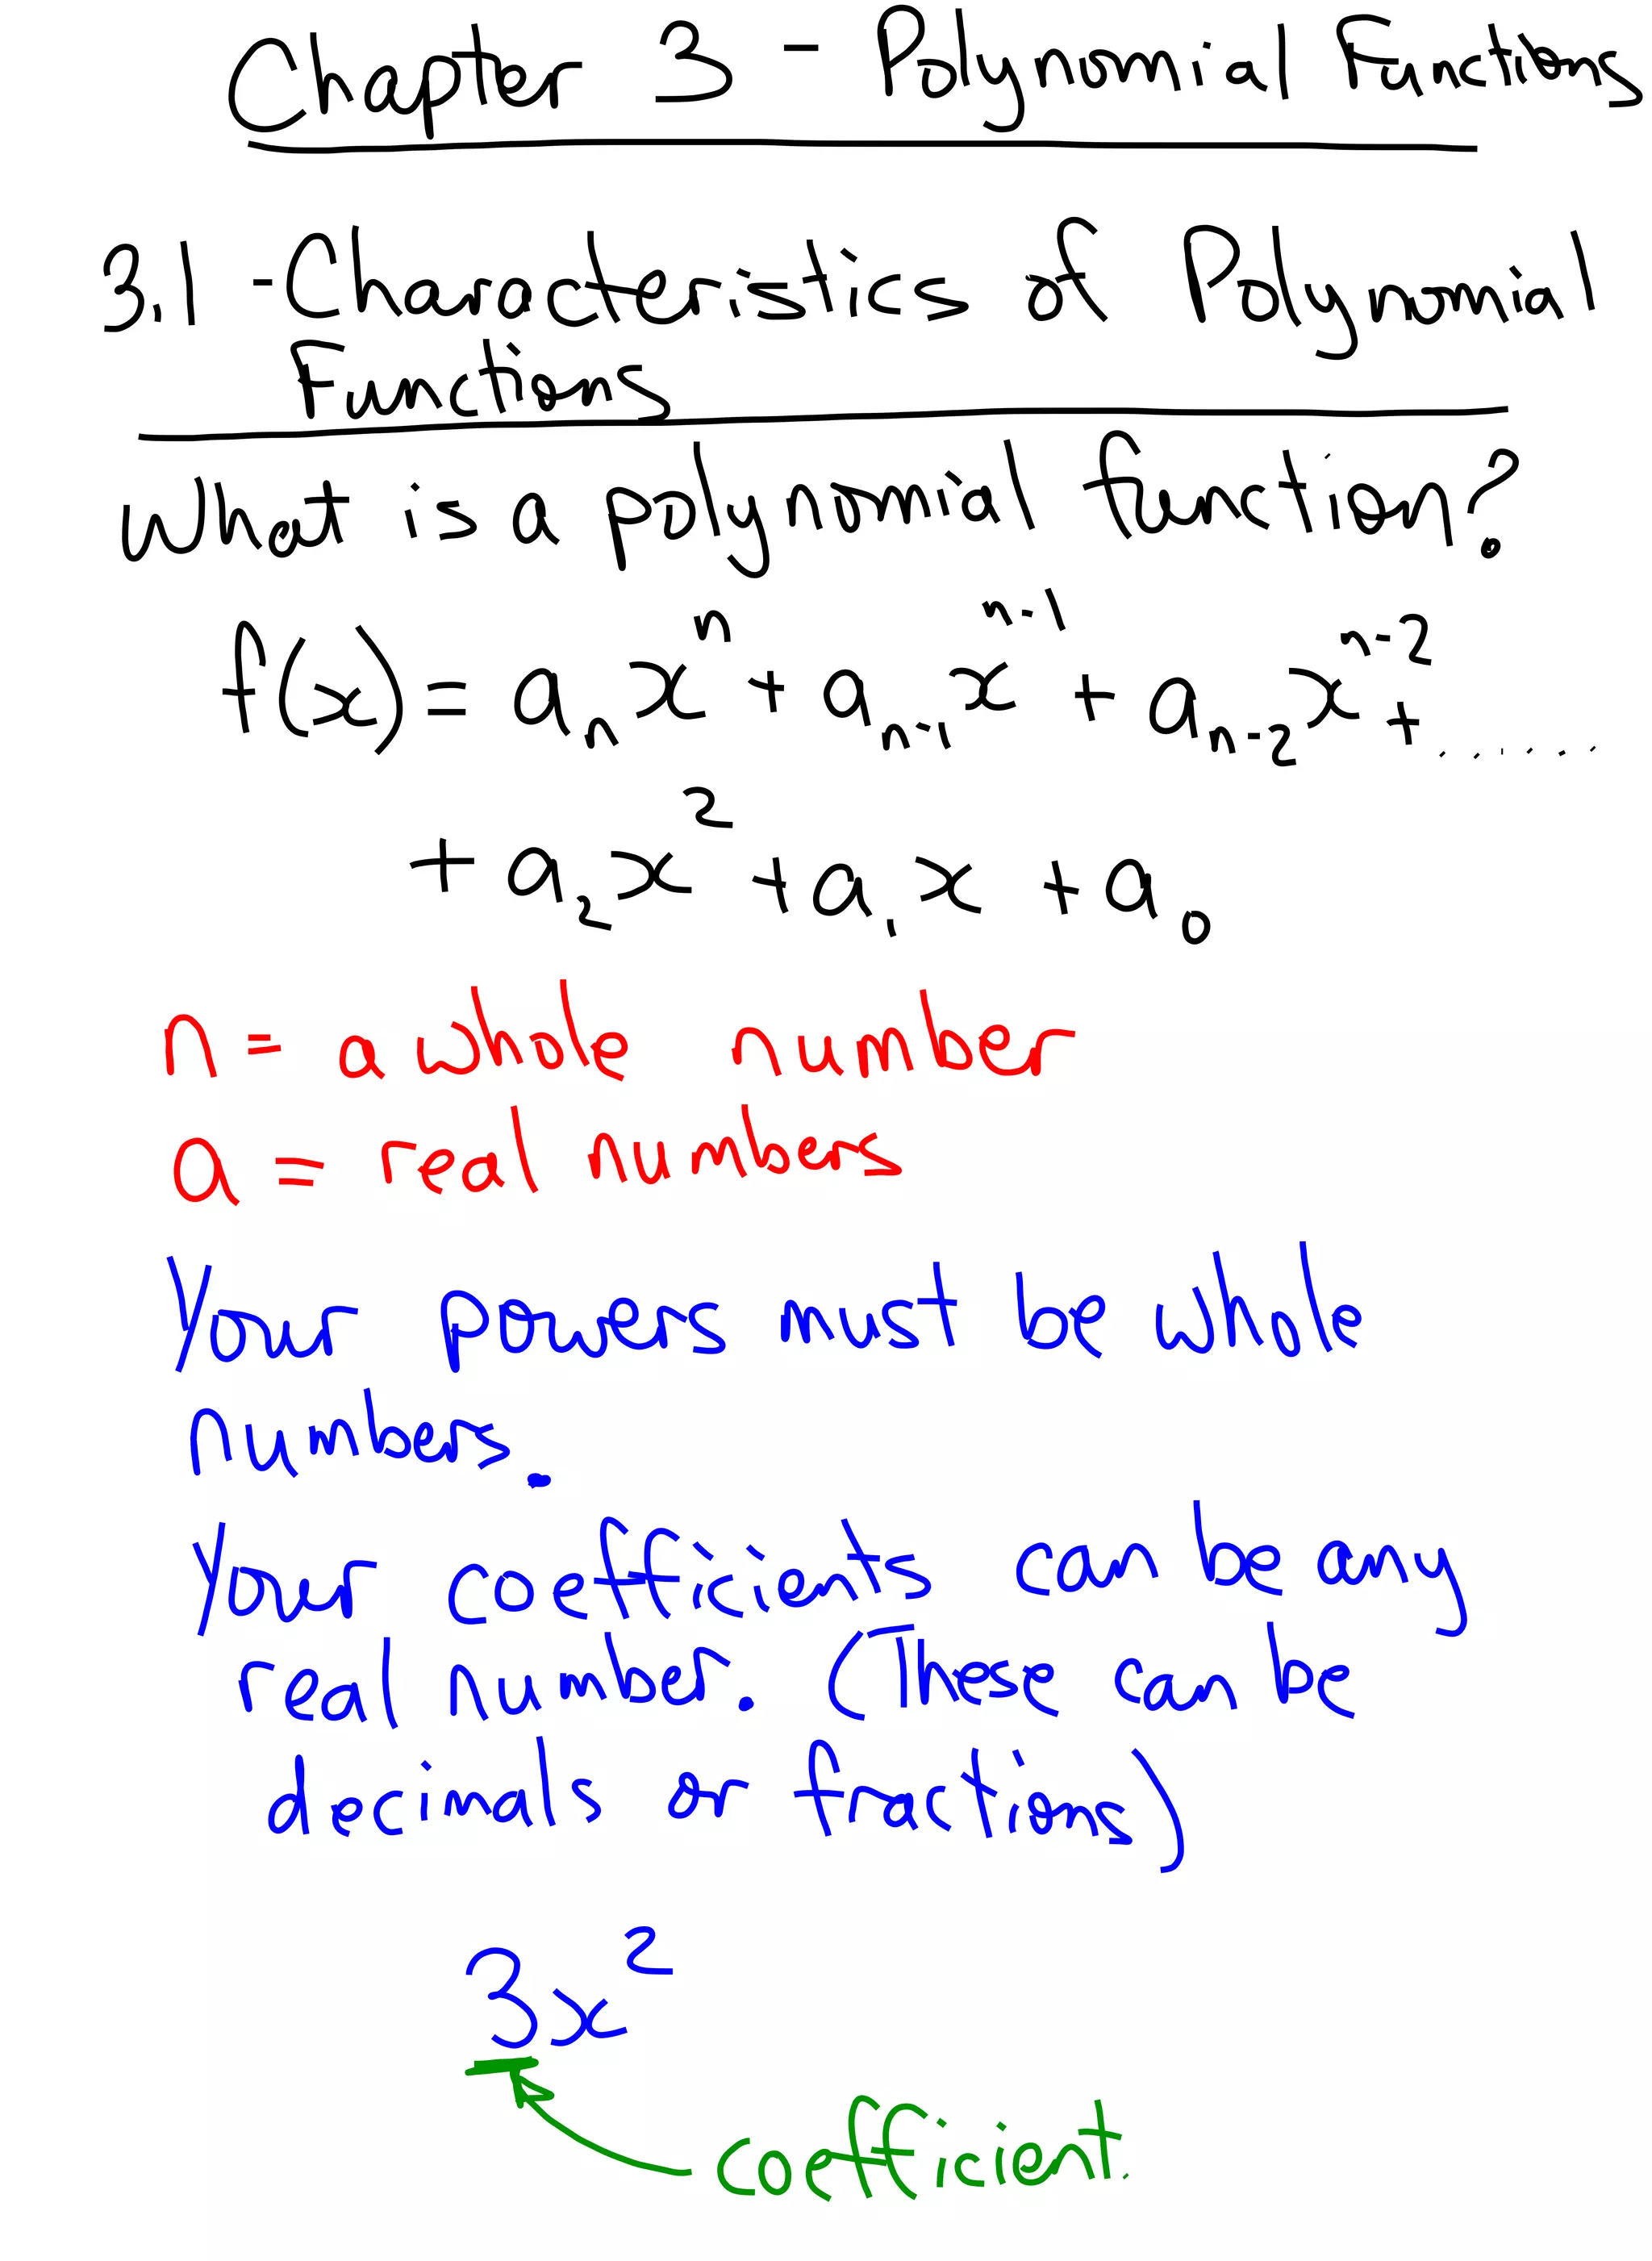 Chapter 3 - Polynomial Functions
3.1 - Characteristics of Polynomial
Functions
What is a polynomial function?
f(x) = aₙxⁿ + aₙ₋₁xⁿ⁻¹ + aₙ₋₂xⁿ⁻² + .......
+ a₂x² + a₁x + a₀
n = a whole number
a = real numbers
Your powers must be whole
numbers.
Your coefficients can be any
real number. (These can be
decimals or fractions)
3x²
coefficient.